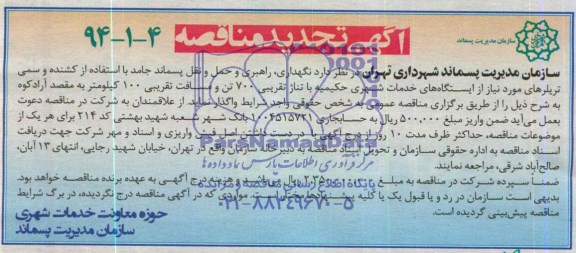 آگهی تجدید مناقصه
۹۴-۱-۴
سازمان مدیریت پسماند
سازمان مدیریت پسماند شهرداری تهران در نظر دارد نگهداری، راهبری و حمل و نقل پسماند جامد با استفاده از کشنده و سمی
تریلرهای مورد نیاز از ایستگاه‌های خدمات شهری حکیمیه با تناژ تقریبی ۷۰۰ تن و مسافت تقریبی ۱۰۰ کیلومتر به مقصد آرادکوه
به شرح ذیل را از طریق برگزاری مناقصه عمومی به شخص حقوقی واجد شرایط واگذار نماید. از علاقمندان به شرکت در مناقصه دعوت
بعمل می‌آید ضمن واریز مبلغ ۵۰۰,۰۰۰ ریال به حسابجاری بانک شهر شعبه شهید بهشتی کد ۲۱۴ برای هر یک از
موضوعات مناقصه، حداکثر ظرف مدت ۱۰ روز از درج آگهی با در دست داشتن اصل فیش واریزی و اسناد و مهر شرکت جهت دریافت
اسناد مناقصه به اداره حقوقی سازمان و تحویل اسناد مناقصه به دبیرخانه سازمان واقع در تهران، خیابان شهید رجایی، انتهای ۱۳ آبان،
صالح‌آباد شرقی، مراجعه نمایند.
ضمناً سپرده شرکت در مناقصه به مبلغ ریال می‌باشد و هزینه درج آگهی به عهده برنده مناقصه خواهد بود.
بدیهی است سازمان در رد و یا قبول یک یا کلیه پیشنهادها مختار است. مواردی که در آگهی مناقصه درج نگردیده، در برگ شرایط
مناقصه پیش‌بینی گردیده است.
حوزه معاونت خدمات شهری
سازمان مدیریت پسماند
ParsNamadData
مرکز فرآوری اطلاعات پارس نماد داده‌ها
پایگاه اطلاع رسانی مناقصه و مزایده
۰۲۱-۸۸۳۴۹۶۷۰-۵